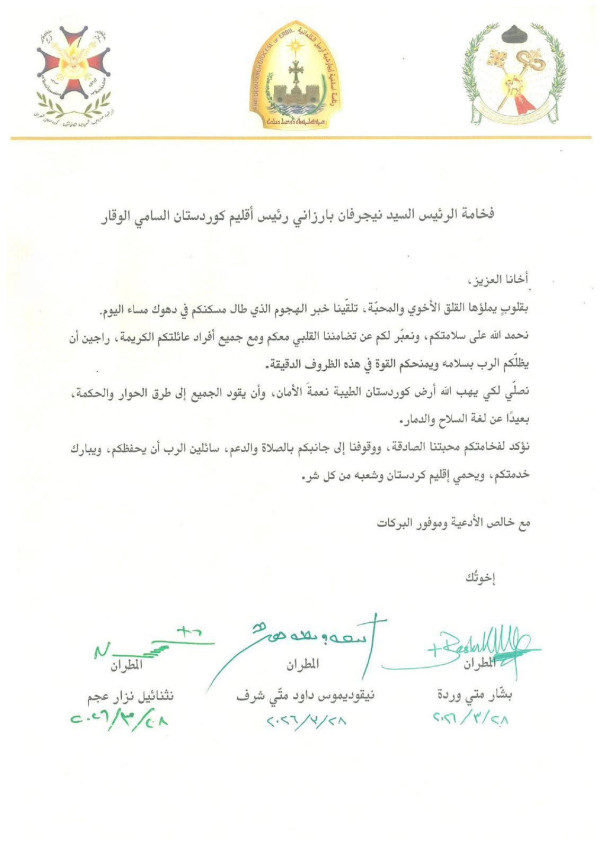 CHALDEAN ARCHDIOCESE OF ERBIL
فخامة الرئيس السيد نيجرفان بارزاني رئيس أقليم كوردستان السامي الوقار
أخانا العزيز،
بقلوبٍ يملؤها القلق الأخوي والمحبّة، تلقّينا خبر الهجوم الذي طال مسكنكم في دهوك مساء اليوم.
نحمد الله على سلامتكم، ونعبّر لكم عن تضامننا القلبي معكم ومع جميع أفراد عائلتكم الكريمة، راجين أن
يظلّكم الرب بسلامه ويمنحكم القوة في هذه الظروف الدقيقة.
نصلّي لكي يهب الله أرض كوردستان الطيبة نعمةَ الأمان، وأن يقود الجميع إلى طرق الحوار والحكمة،
بعيدًا عن لغة السلاح والدمار.
نؤكد لفخامتكم محبتنا الصادقة، ووقوفنا إلى جانبكم بالصلاة والدعم، سائلين الرب أن يحفظكم، ويبارك
خدمتكم، ويحمي إقليم كردستان وشعبه من كل شر.
مع خالص الأدعية وموفور البركات
إخوتُك
المطران المطران المطران
بشّار متي وردة نيقوديموس داود متّي شرف نثنائيل نزار عجم
٢٠٢٦/٣/٢٨ ٢٠٢٦/٣/٢٨ ٢٠٢٦/٣/٢٨